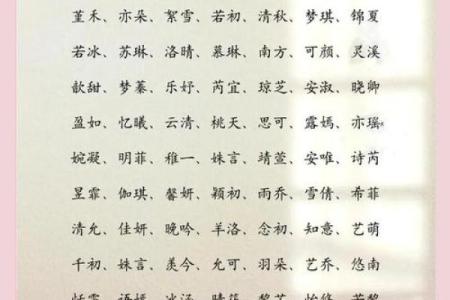 堇禾、亦朵、絮雪、若初、清秋、梦琪、锦夏
若冰、苏琳、洛晴、慕琳、南方、可颜、灵溪
歆甜、梦蓁、乐妤、芮宜、琼芝、安淑、晓卿
盈如、忆曦、云清、桃夭、思可、露嫣、亦瑶
婉凝、明菲、稚一、姝言、靖萱、安唯、诗芮
昱霏、伽琪、馨妍、颖初、雨乔、雪倩、希菲
清允、佳妍、晚吟、羊洛、念初、知意、艺萌
千初、姝言、羡今、允可、羽朵、艺乔、悠南